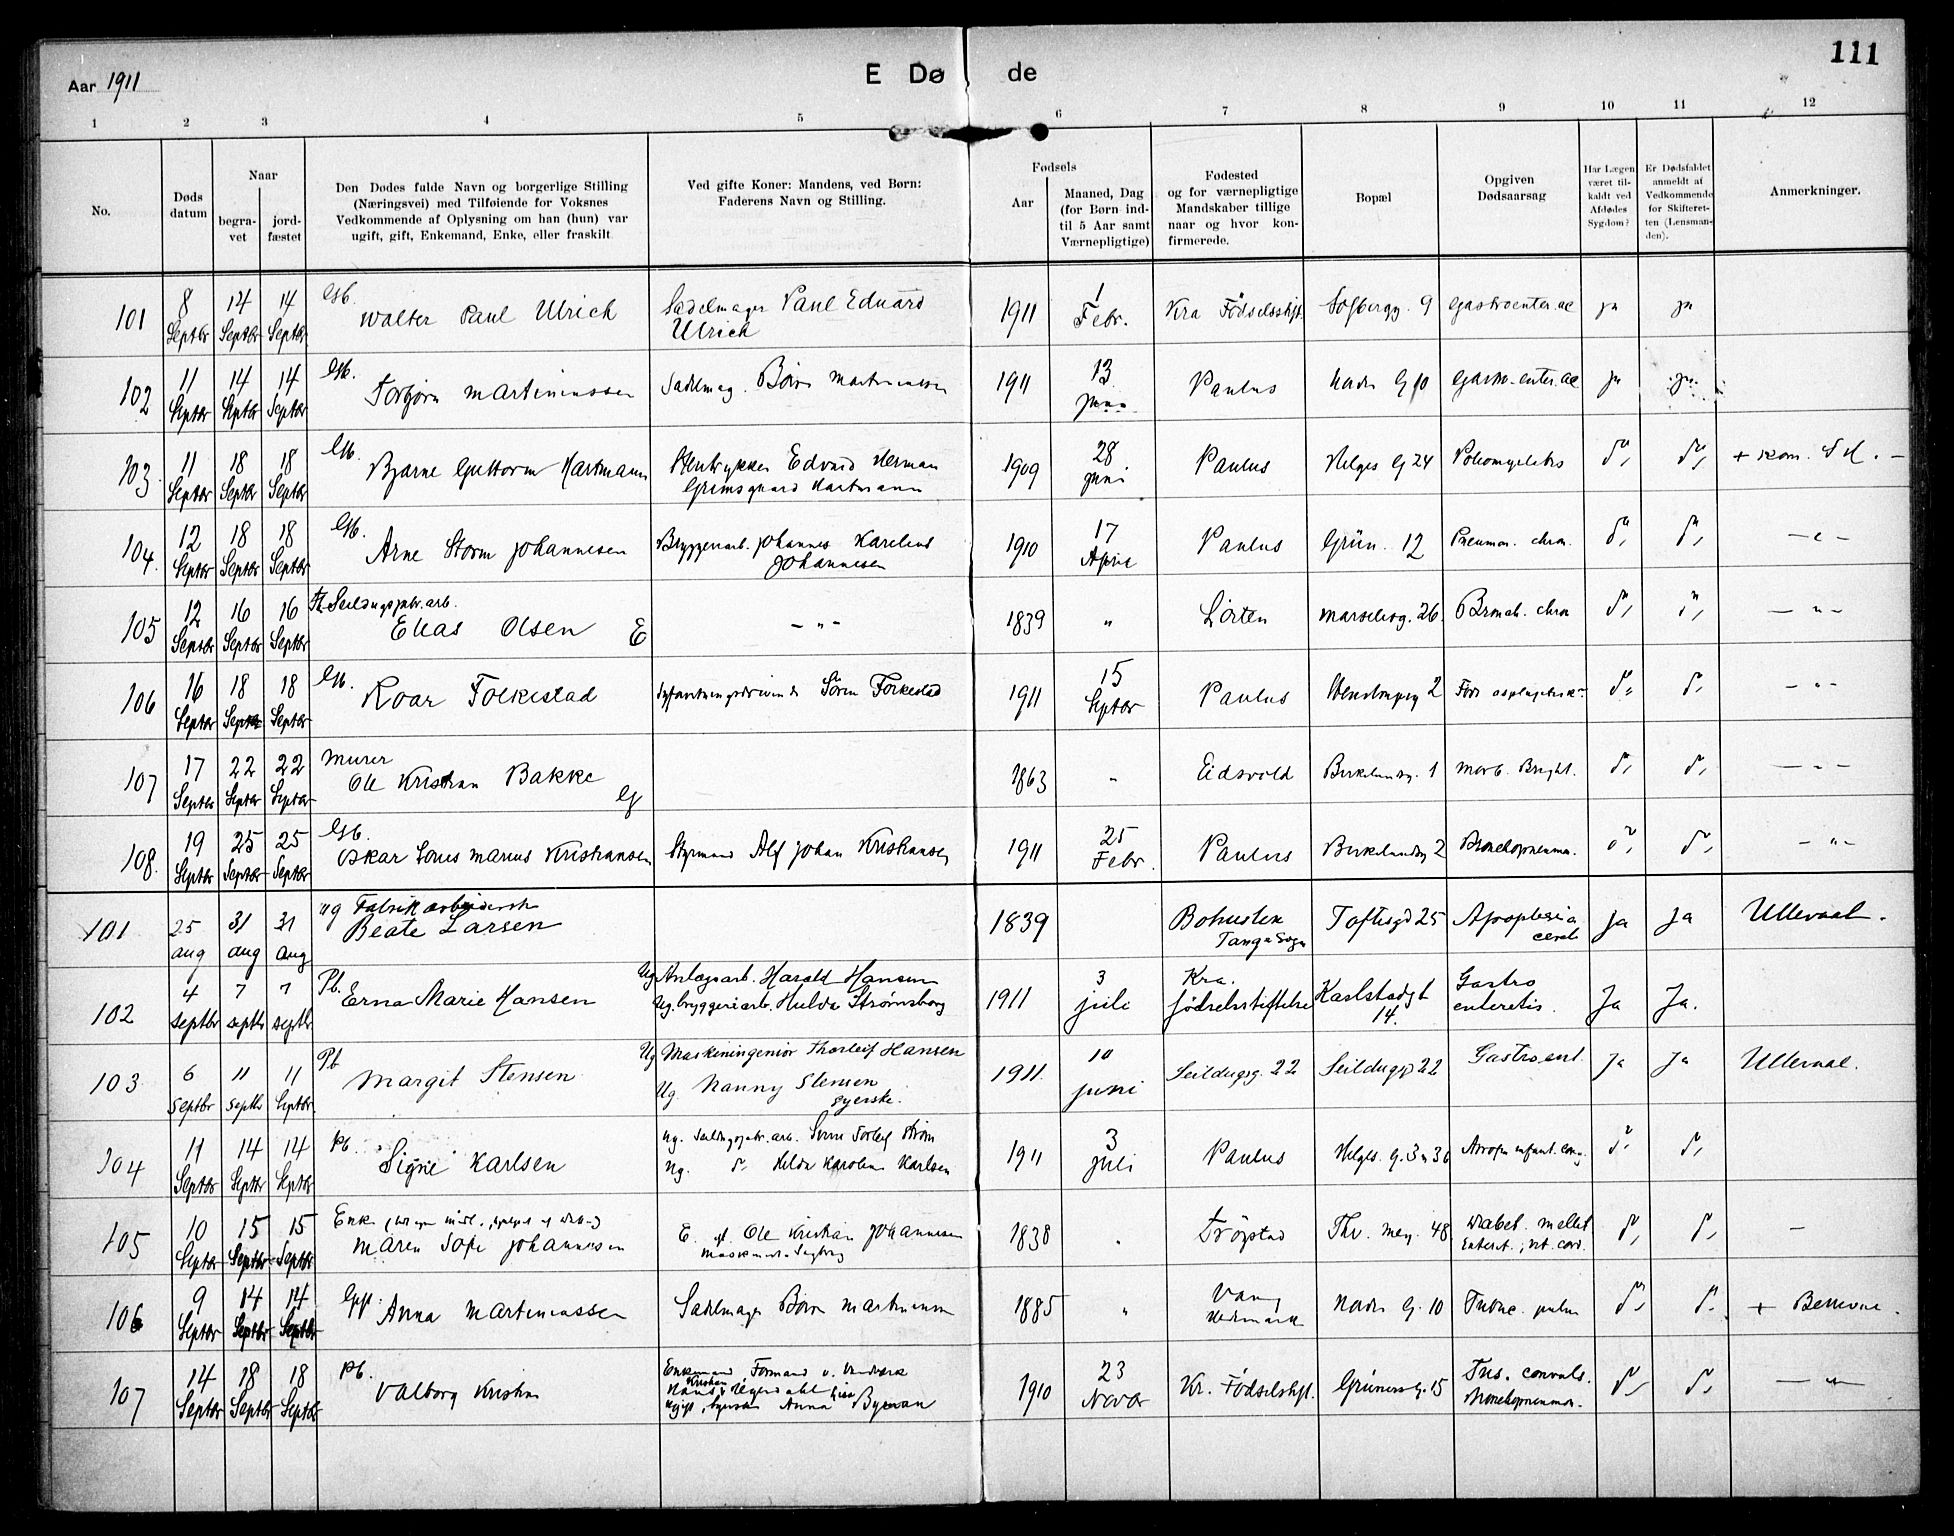 111
Aar 1911 E Dø de
1 2 3 4 5 6 7 8 9 10 11 12
No.
Døds datum
Naar
begra- vet
jord- fæstet
Den Dødes fulde Navn og borgerlige Stilling
(Næringsvei) med Tilføiende for Voksnes
Vedkommende af Oplysning om han (hun) var
ugift, gift, Enkemand, Enke, eller fraskilt.
Ved gifte Koner: Mandens, ved Børn:
Faderens Navn og Stilling.
Fødsels
Aar
Maaned, Dag
(for Børn ind-
til 5 Aar samt
Værnepligtige)
Fødested
og for værnepligtige
Mandskaber tillige
naar og hvor kon-
firmerede.
Bopæl
Opgiven
Dødsaarsag
Har Lægen
været til-
kaldt ved
Afdødes
Sygdom?
Er Dødsfaldet
anmeldt af
Vedkommende
for Skifteret-
ten (Lensman-
den).
Anmerkninger.
101 8 Septbr 14 Septbr 14 Septbr Walter Paul Ulrich Sadelmager Paul Eduard Ulrich 1911 1 Febr. Kra Födselsstift. 9 Gastroenter. ac ja ja
102 11 Septbr 14 Septbr 14 Septbr Torbjørn Martiniussen Sadelmag. 1911 13 Juni Paulus G 10 Gastro-enter. ac ja ja
103. 11 Septbr 18 Septbr 18 Septbr Bjarne Guttorm Hartmann Stentrykker Edvard Herman Grimsgaard Hartmann 1909 28 Juni Paulus Helges G 24 Poliomyelitis
104. 12 Septbr 18 Septbr 18 Septbr Arne Storm Johannesen Bryggeriarb. Johannes Karelius Johannesen 1910 17 April Paulus Grün. 12 Pneumon. chron.
105 12 Septbr 16 Septbr 16 Septbr Seildugsfabr. arb. Elias Olsen E — " — 1839 " Marselisg. 26. Bronch. chron
106 16 Septbr 18 Septbr 18 Septbr Roar Folkestad Søren Folkestad 1911 15 Septbr Paulus 2
107 17 Septbr 22 Septbr 22 Septbr Murer Ole Kristian Bakke G 1863 " Eidsvold Birkelundsg. 1 Morb. Bright.
108. 19 Septbr 25 Septbr 25 Septbr Oskar Louis Marius Kristiansen Styrmand Alf Johan Kristiansen 1911 25 Febr. Paulus Birkelundsg 2 Bronchopneumon.
101 25 aug 31 aug 31 aug ug Fabrikarbeiderske Beate Larsen 1839 Bohuslen Tanga Sogn Toftesgd 25 Apoplexia cereb. Ja Ja Ullevaal.
102 4 septbr 7 septbr 7 septbr Pb. Erna Marie Hansen Ug Anlægsarb. Harald Hansen Ug. bryggeriarb. Hulda Strømsborg 1911 3 juli Kra. fødselsstiftelse Karlstadgt 14. Gastro enteretis. Ja Ja.
103 6 septbr 11 septbr 11 septbr Pb Margit Stensen Ug Maskiningeniør Thorleif Hansen Ug Nanny Stensen syerske. 1911. 10 juni Seildugsg. 22 Seildugsg 22 Gastroent. Ja Ja Ullevaal.
104 11 Septbr 14 Septbr 14 Septbr Pb. Signe Karlsen Ug. Seildugsfabr. arb. Ug. Hilda Karoline Karlsen 1911 3 Juli Paulus Helges. G. Atrofia infant. cong.
105 10 Septbr 15 Septbr 15 Septbr Enke Maren Sofie Johannesen E. af. Ole Kristian Johannesen 1838 Trögstad Thv. Mey. 48 Diabet. mellet Enteret. , vit. cord. —
106 9 Septbr 14 Septbr 14 Septbr Anna Martiniussen Sadelmager 1885 " Vang Hedemark G. 10 Tuberc. pulm
107 14 Septbr 18 Septbr 18 Septbr Pb. Valborg Kristine Enkemand Formand Anna Byman 1910 23 Novbr Kr. Födselsstift. Grüners G. 15 Tus. convuls. Bronchopneumon.